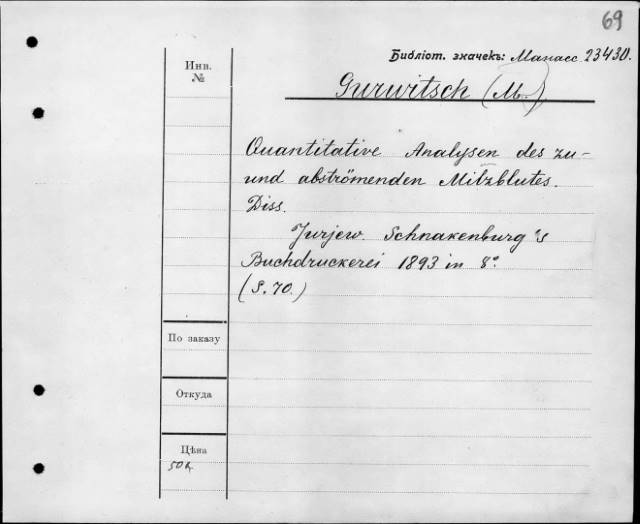 69
Библіот. значекъ: Манасс 23430.
Инв.
№
Gurwitsch (M.)
Quantitative Analysen des zu-
und abströmenden Milzblutes.
Diss.
Jurjew. Schnakenburg's
Buchdruckerei 1893 in 8°.
(S. 70.)
По заказу
Откуда
Цѣна
50